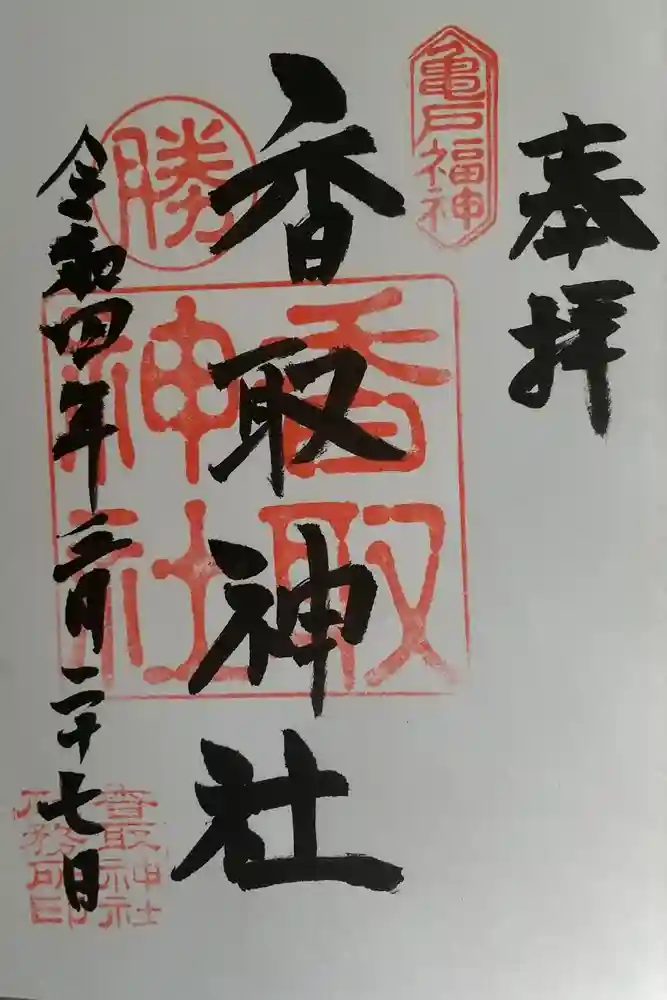 奉拝
亀戸福神
香取神社
香取神社
勝
令和四年三月二十七日
香取神社
社務所印